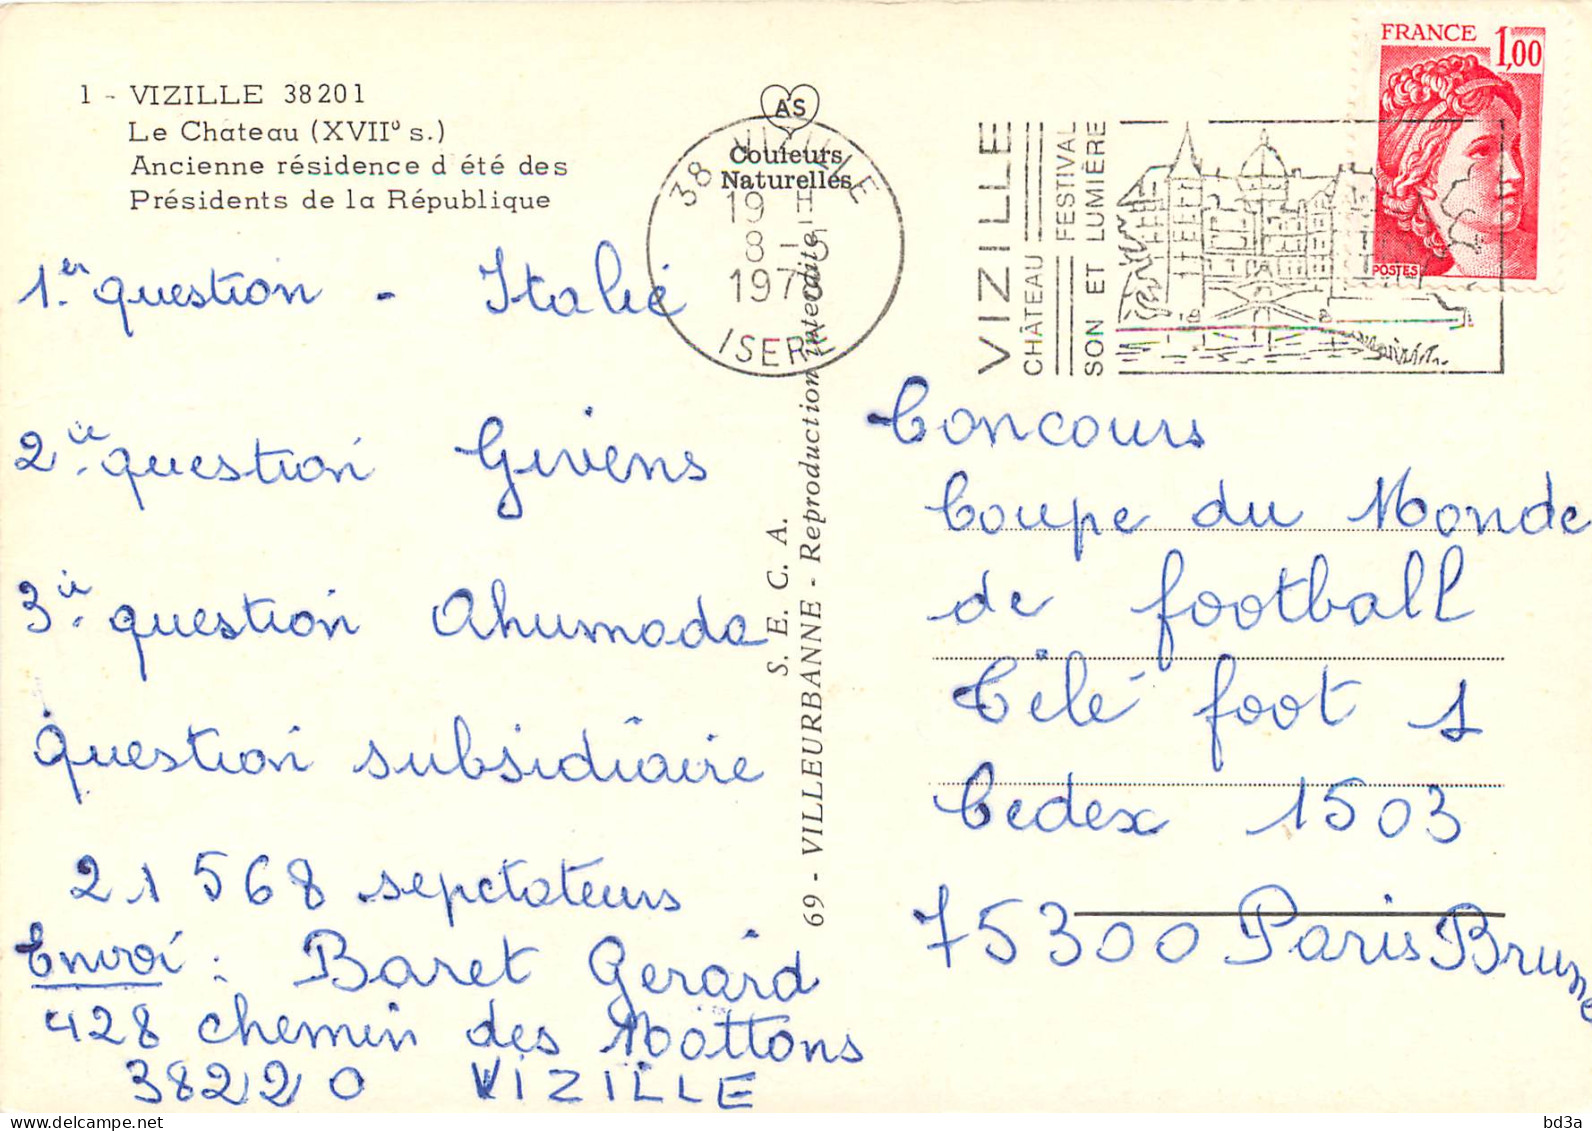 1 - VIZILLE 38201
Le Chateau (XVIIº s.)
Ancienne résidence d été des
Présidents de la République
AS
Couleurs
Naturelles
38 VIZILLE
19 H
8 - 5
1978
ISERE
VIZILLE
CHÂTEAU FESTIVAL
SON ET LUMIÈRE
FRANCE 1,00
POSTES
1.er question - Italie
2.ie question Givens
3.ie question Ahumada
Question subsidiaire
21 568 sepctateurs
Envoi : Baret Gerard
428 chemin des Mottons
38220 VIZILLE
S. E. C. A.
69 - VILLEURBANNE - Reproduction interdite
Concours
Coupe du Monde
de football
Télé foot 1
Cedex 1503
75300 Paris Brune
bd3a